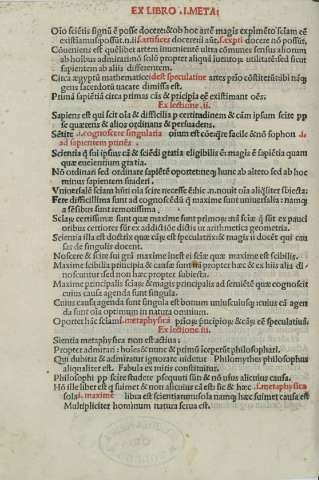 EX LIBRO .I. META:
Oĩo sciētis signũ ē posse docere:&ob hoc artē magis expimēto sciam eē
existimamus possũt.n.ii.s.artifices docere:ii aũt.s.expti docere nõ possũt.
Cõueniens est quēlibet artem inuenientē ultra cõmunes sensus aliorum
ab hoibus admirari:nõ solũ propter aliquã iuentoꝝ utilitatē:sed sicut
sapientem ab aliis differentem.
Circa ægyptũ mathematicæ idest speculatiue artes prĩo cõstitutæ ibi nãq;
gens sacerdotũ uacare dimissa est.
Prima sapiētia circa primas cãs & pricipia eē existimant oēs.
Ex lectione .ii.
Sapiens est qui scit oĩa & difficilia p certitudinem & cãm ipsum scire ppter
se quærens & alios ordinans & persuadens.
Sētire .i. cognoscere singularia oium est cõe:qre facile & nõ sophon .i.
ad sapientem ptinēs
Scientia q sui ipsius cã & sciēdi gratia eligibilis ē: magis ē sapiētia quam
quæ eueniēntium gratia.
Nõ ordinari sed ordinare sapiētē oportet:neq; hunc ab altero sed ab hoc
minus sapientem suaderi.
Vniuersalē sciam hñti oĩa scire necesse ē:hic.n.nouit oĩa aliqliter sbiecta:
Fere difficillima sunt ad cognoscēdũ q maxime sunt uniuersalia: namq;
a sēsibus sunt remotissima.
Sciaꝝ certissimæ sunt quæ maxime sunt primoꝝ: nã sciæ q sũt ex pauci
oribus certiores sũt ex addictiõe dictis ut arithmetica geometria.
Scientia illa est doctrix quæ cãꝝ est speculatrix:& magis ii docēt qui cau
sas de singulis docent.
Noscere & scire sui grã maxime inest ei sciæ quæ maxime est scibilis.
Maxime scibilia principia & causæ sunt: nã propter hæc & ex hiis alia di
noscuntur sed non hæc propter subiecta.
Maxime principalis sciaꝝ & magis principalis ad seruiētē quæ cognoscit
cuius causa agenda sunt singula.
Cuius causa agenda sunt singula est bonum uniuscuiusq; :cuius cã agen
da sunt oĩa optimum in natura omnium.
Oportet hãc sciam .s. metaphysicã prioꝝ pricipioꝝ & cãꝝ eē speculatiuã.
Ex lectione .iii.
Sientia metaphysica non est actiua:
Propter admirari : hoĩes & nunc & primũ icœperũt philosophari.
Qui dubitat & admiratur ignorare uidetur Philomythes philosophus
aliqualiter est. Fabula ex mitis constituitur.
Philosophi pp scire studere psequuti sũt & nõ usus alicuius causa.
Hõ ille liber est q suimet & non alicuius cã est:sic & hæc .s. metaphysica
sola .i. maxime libera est scientiarum:sola namq; hæc suimet causa est
Multipliciter hominum natura serua est.